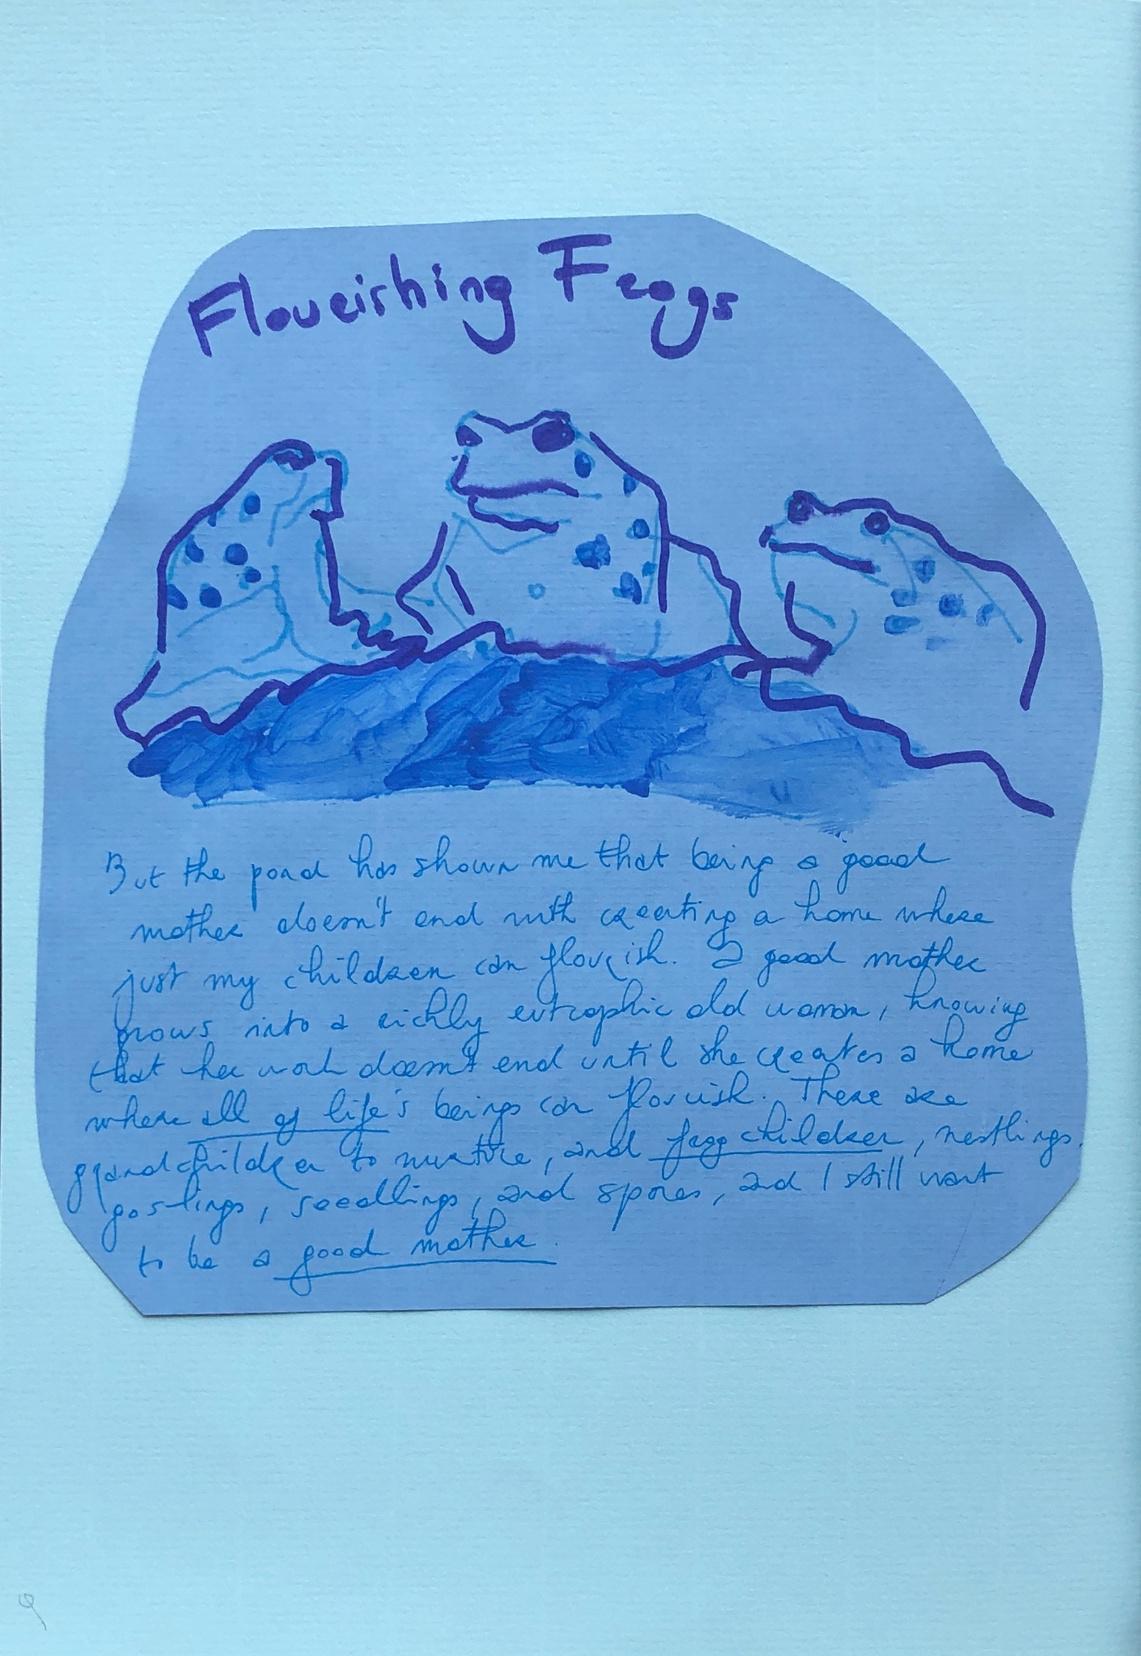 Flourishing Frogs
But the pond has shown me that being a good
mother doesn't end with creating a home where
just my children can flourish. A good mother
grows into a richly eutrophic old woman, knowing
that her work doesn't end until she creates a home
where all of life's beings can flourish. There are
grandchildren to nurture, and frog children, nestlings,
goslings, seedlings, and spores, and I still want
to be a good mother.
9